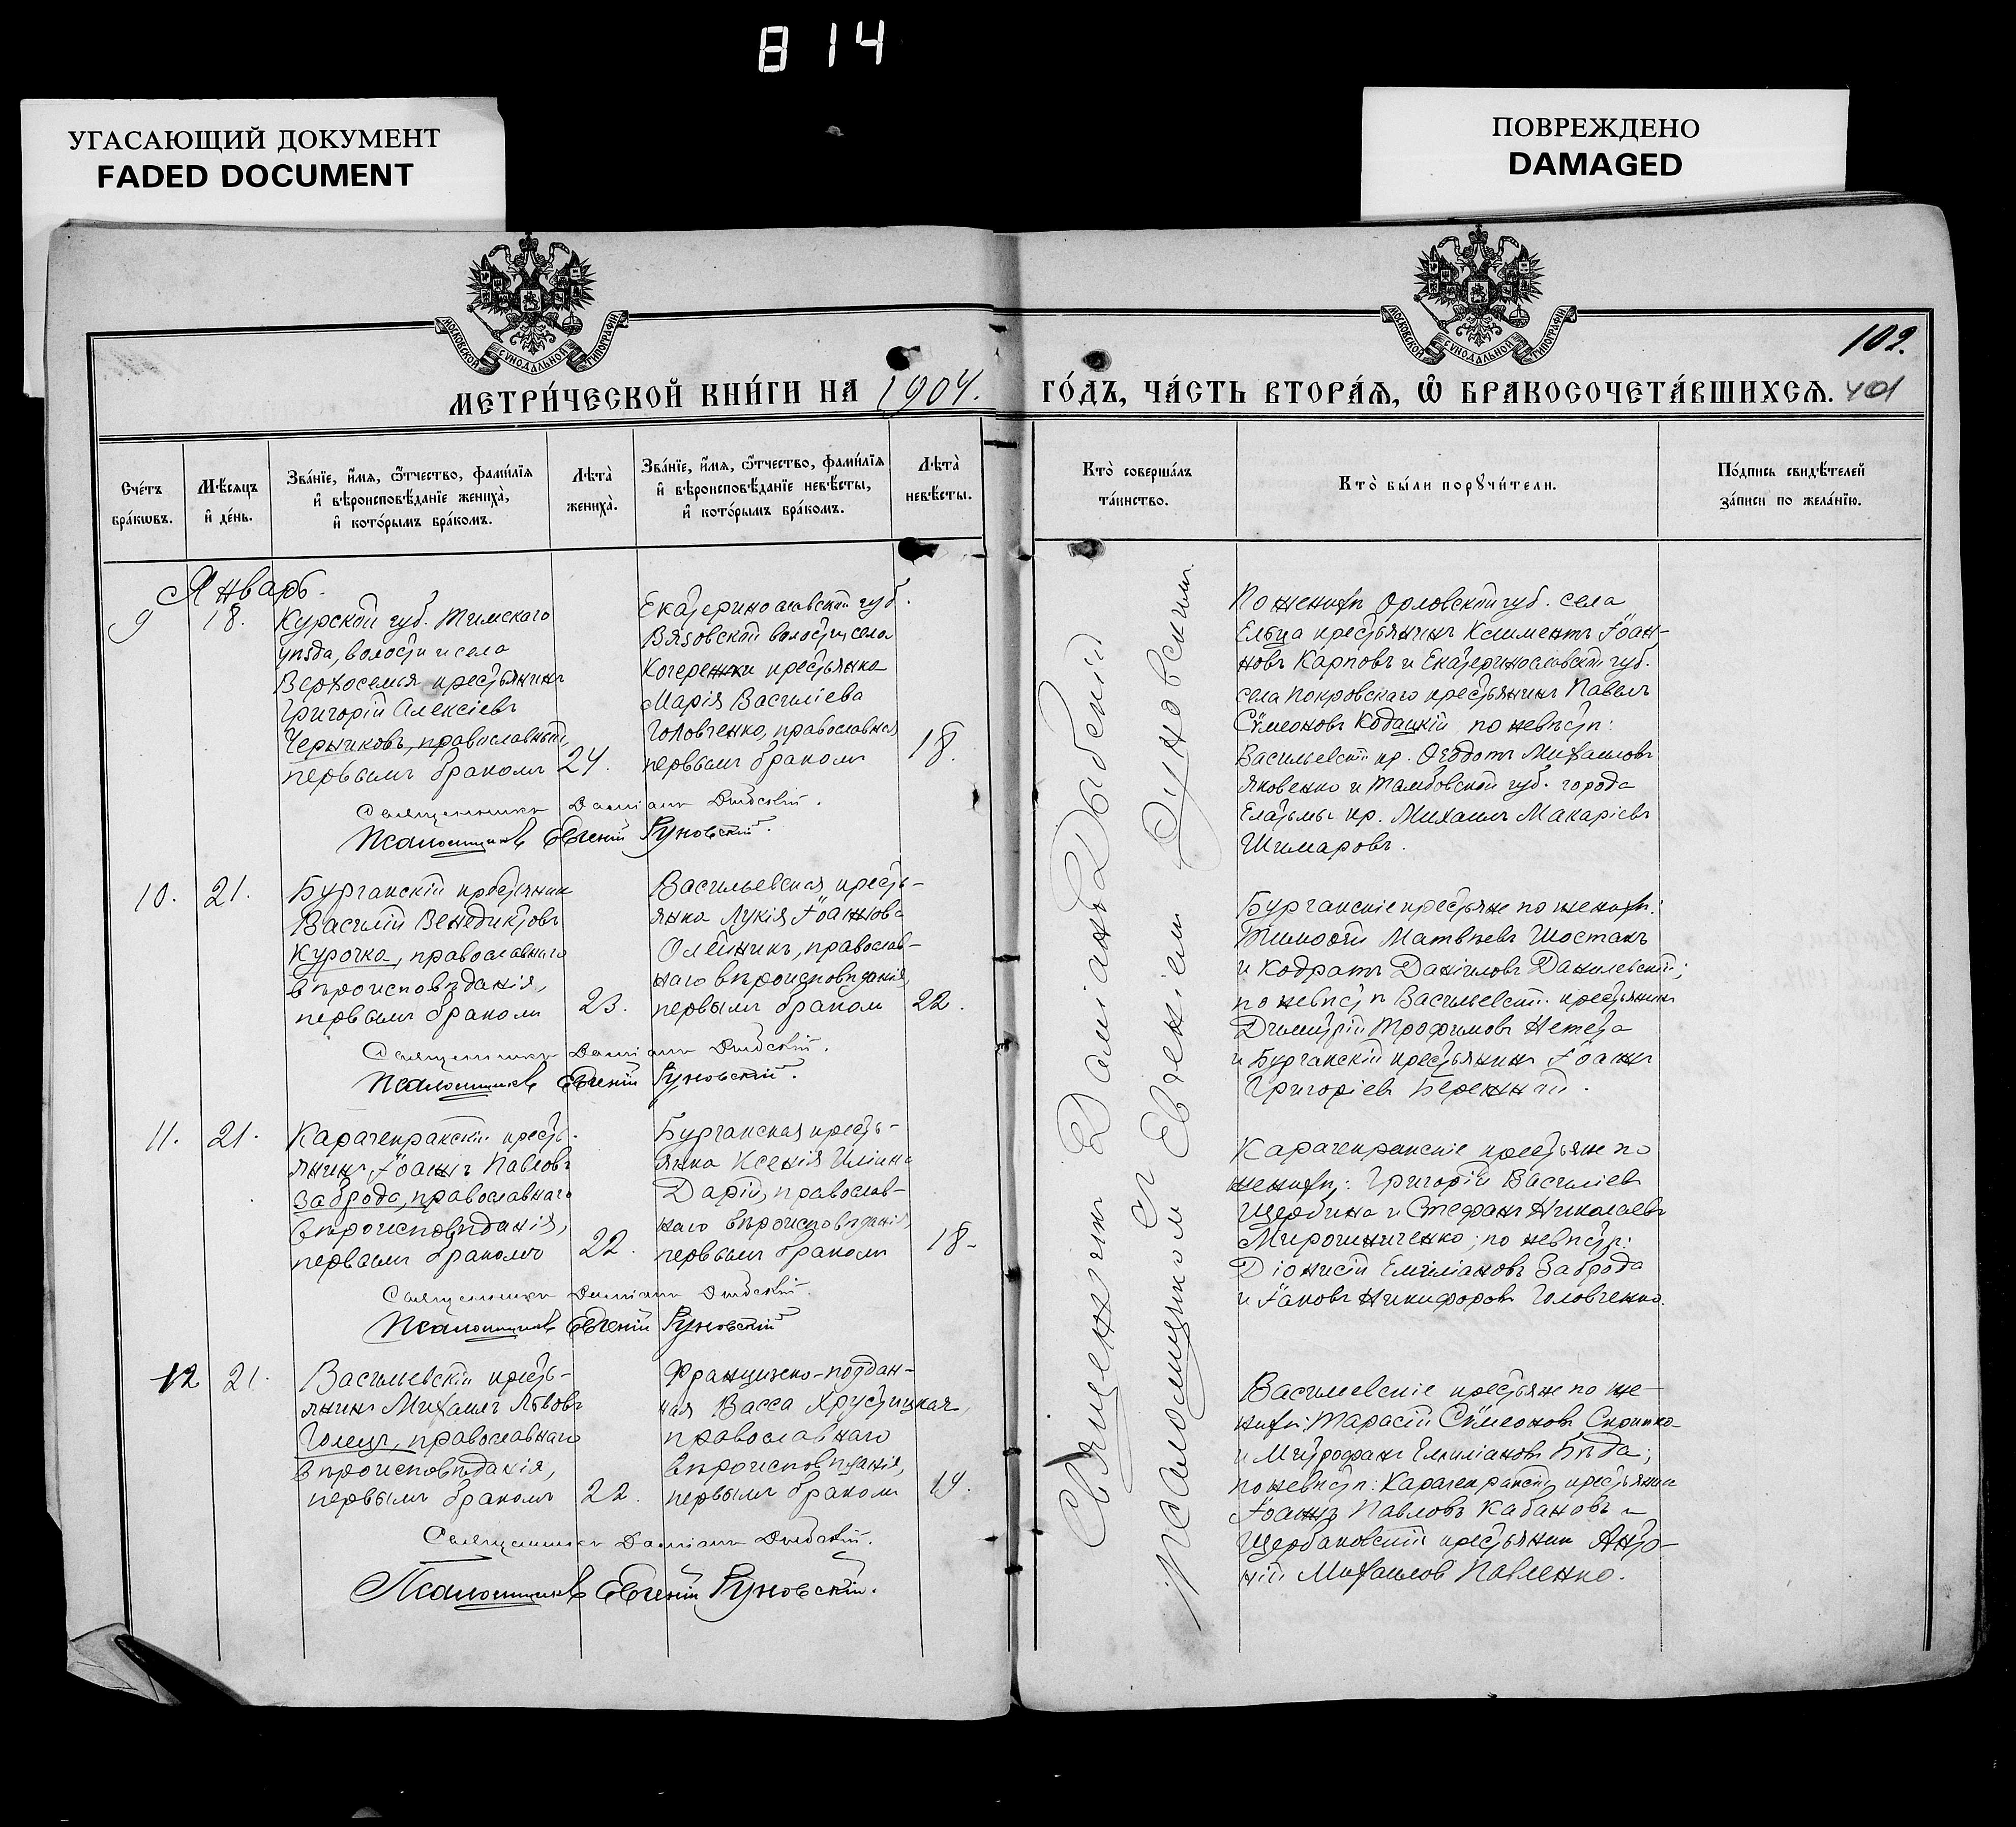 814
УГАСАЮЩИЙ ДОКУМЕНТ
FADED DOCUMENT
ПОВРЕЖДЕНО
DAMAGED
МОСКОВСКОЙ СУНОДАЛЬНОЙ ТИПОГРАФІИ
МЕТРИ́ЧЕСКОЙ КНИ́ГИ НА 1904.
Сче́тъ бра́кωвъ.
Мѣ́сяцъ и҆ де́нь.
Зва́нїе, и҆́мя, ѻ҆́тчество, фами́лїя и҆ вѣроисповѣ́данїе жениха̀, и҆ кото́рымъ бра́комъ.
Лѣта̀ жениха̀.
Зва́нїе, и҆́мя, ѻ҆́тчество, фами́лїя и҆ вѣроисповѣ́данїе невѣ́сты, и҆ кото́рымъ бра́комъ.
Лѣта̀ невѣ́сты.
Январь.
9
18.
Курской губ. Тимскаго
уѣзда, волости и села
Верхоселья крестьянинъ
Григорій Алексіевъ
Черниковъ, православный,
первымъ бракомъ
24.
Екатеринославской губ.
Вязовской волости села
Кочережки крестьянка
Марія Василіева
Головченко, православная
первымъ бракомъ
18.
Священникъ Даміанъ Дыбскій.
Псаломщикъ Евгеній Руновскій.
10.
21.
Бурчакскій крестьянин
Василій Венедиктовъ
Курочка, православнаго
вѣроисповѣданія,
первымъ бракомъ
23.
Васильевская кресть-
янка Лукія Іоаннова
Олейникъ, православ-
наго вѣроисповѣданія,
первымъ браком
22.
Священникъ Даміанъ Дыбскій.
Псаломщикъ Евгеній Руновскій.
11.
21.
Карачекракскій кресть-
янинъ Іоаннъ Павловъ
Заброда, православнаго
вѣроисповѣданія,
первымъ бракомъ
22.
Бурчакская кресть-
янка Ксенія Иліина
Дарій, православ-
наго вѣроисповѣданія,
первымъ бракомъ
18-
Священникъ Даміанъ Дыбскій.
Псаломщикъ Евгеній Руновскій
12
21.
Васильевскій кресть-
янинъ Михаилъ Львовъ
Голецъ, православнаго
вѣроисповѣданія,
первымъ бракомъ
22.
Французско-поддан-
ная Васса Хрустицкая,
православнаго
вѣроисповѣданія,
первымъ браком
19.
Священникъ Даміанъ Дыбскій.
Псаломщикъ Евгеній Руновскій.
102.
МОСКОВСКОЙ СУНОДАЛЬНОЙ ТИПОГРАФІИ
ГО́ДЪ, ЧА́СТЬ ВТОРА́Я, Ѡ БРАКОСОЧЕТА́ВШИХСЯ. 401
Кто̀ соверша́лъ та́инство.
Кто̀ бы́ли порꙋчи́тели.
По́дпись свидѣ́телей за́писи по жела́нїю.
Священникъ Даміанъ Дыбский
Псаломщиком Евгеніем Руновским.
По женихѣ Орловской губ. села
Ельца крестьянинъ Климентъ Іоан-
новъ Карповъ и Екатеринославской губ.
села Покровскаго крестьянинъ Павелъ
Сѵмеоновъ Кодацкій по невѣстѣ:
Васильевскій кр. Ѳеодотъ Михаиловъ
Яковенко и Тамбовской губ. города
Елатьмы кр. Михаилъ Макаріевъ
Шимаровъ.
Бурчакскіе крестьяне по женихѣ:
Тимоѳей Матвѣевъ Шостакъ
и Кодратъ Даніиловъ Данилевскій;
по невѣстѣ Васильевскій крестьянинъ
Димитрій Трофимовъ Нетета
и Бурчакскій крестьянинъ Іоаннъ
Григоріевъ Бережный.
Карачекракскіе крестьяне по
женихѣ: Григорій Василіевъ
Щербина и Стефанъ Николаевъ
Мирошниченко; по невѣстѣ:
Діонисій Емиліановъ Заброда
и Іаковъ Никифоровъ Головченко.
Васильевскіе крестьяне по же-
нихѣ: Тарасій Сѵмеоновъ Скрипко
и Митрофанъ Емиліановъ Бѣда;
по невѣстѣ: Карачекракскій крестьянин
Іоаннъ Павловъ Кабановъ и
Щербаковскій крестьянин Анто-
ній Михаиловъ Павленко.